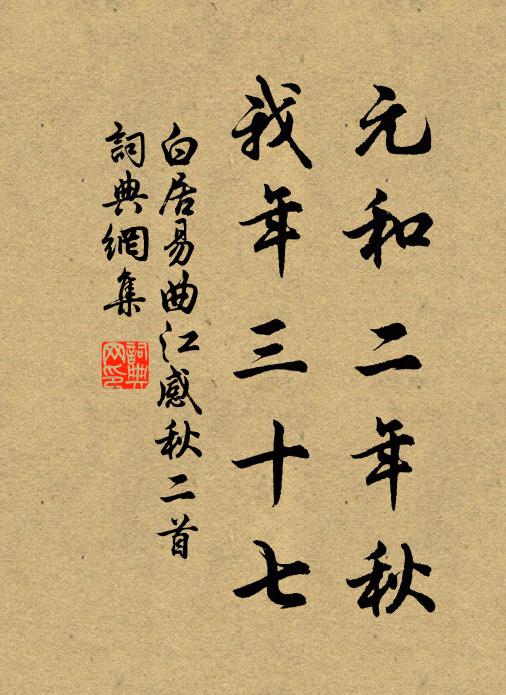 元和二年秋
我年三十七
白居易曲江感秋二首
詞典網集
詞典
网印